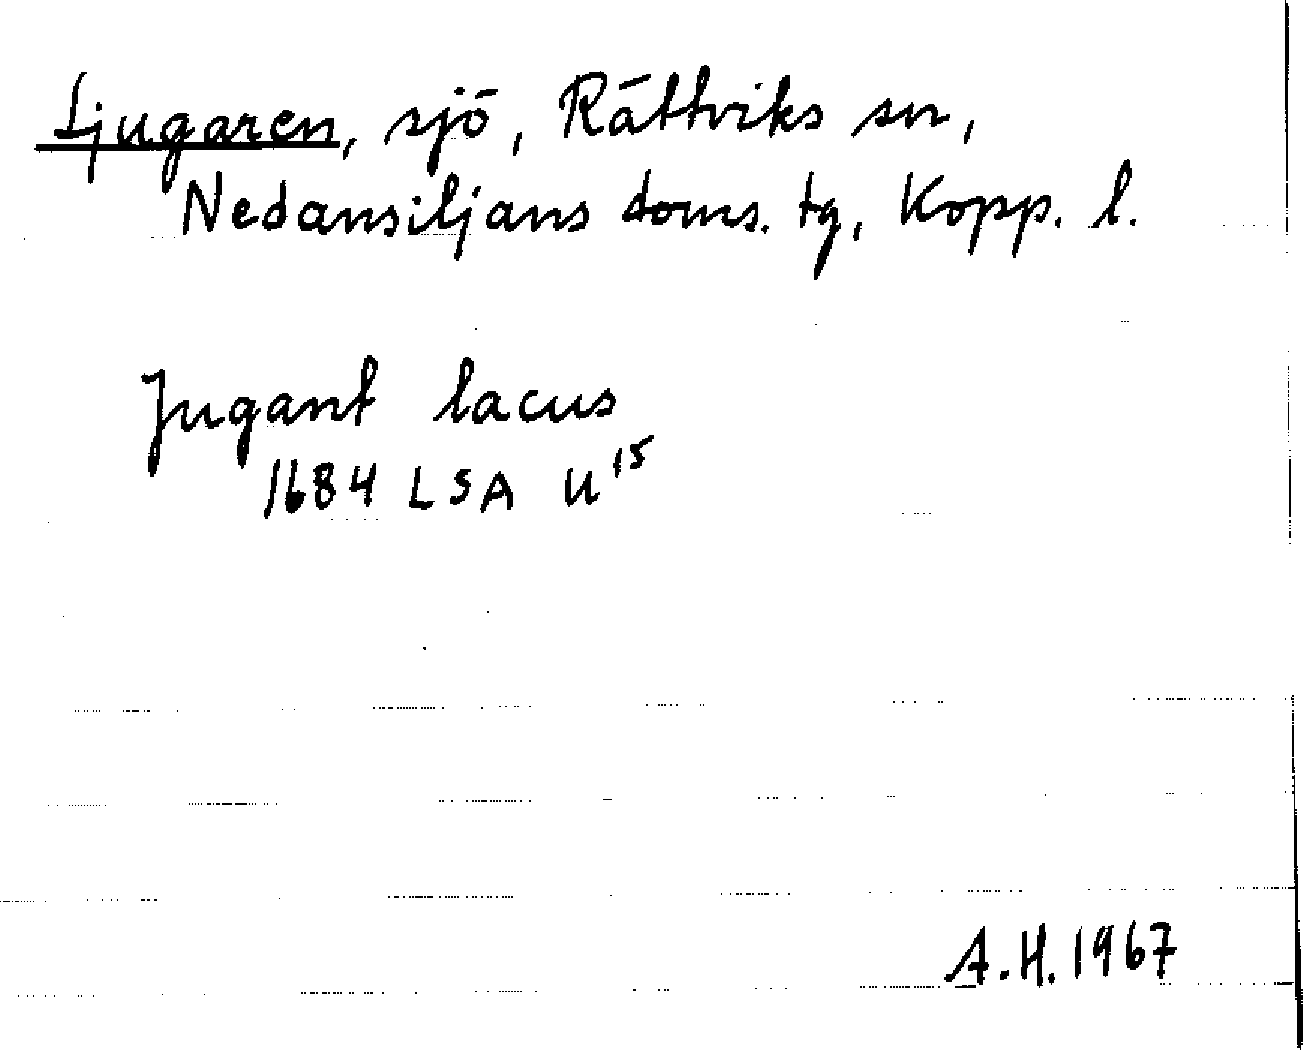 Ljugaren, sjö, Rättviks sn,
Nedansiljans doms. tg, Kopp. l.
Jugant lacus
1684 LSA U15
A.H. 1967